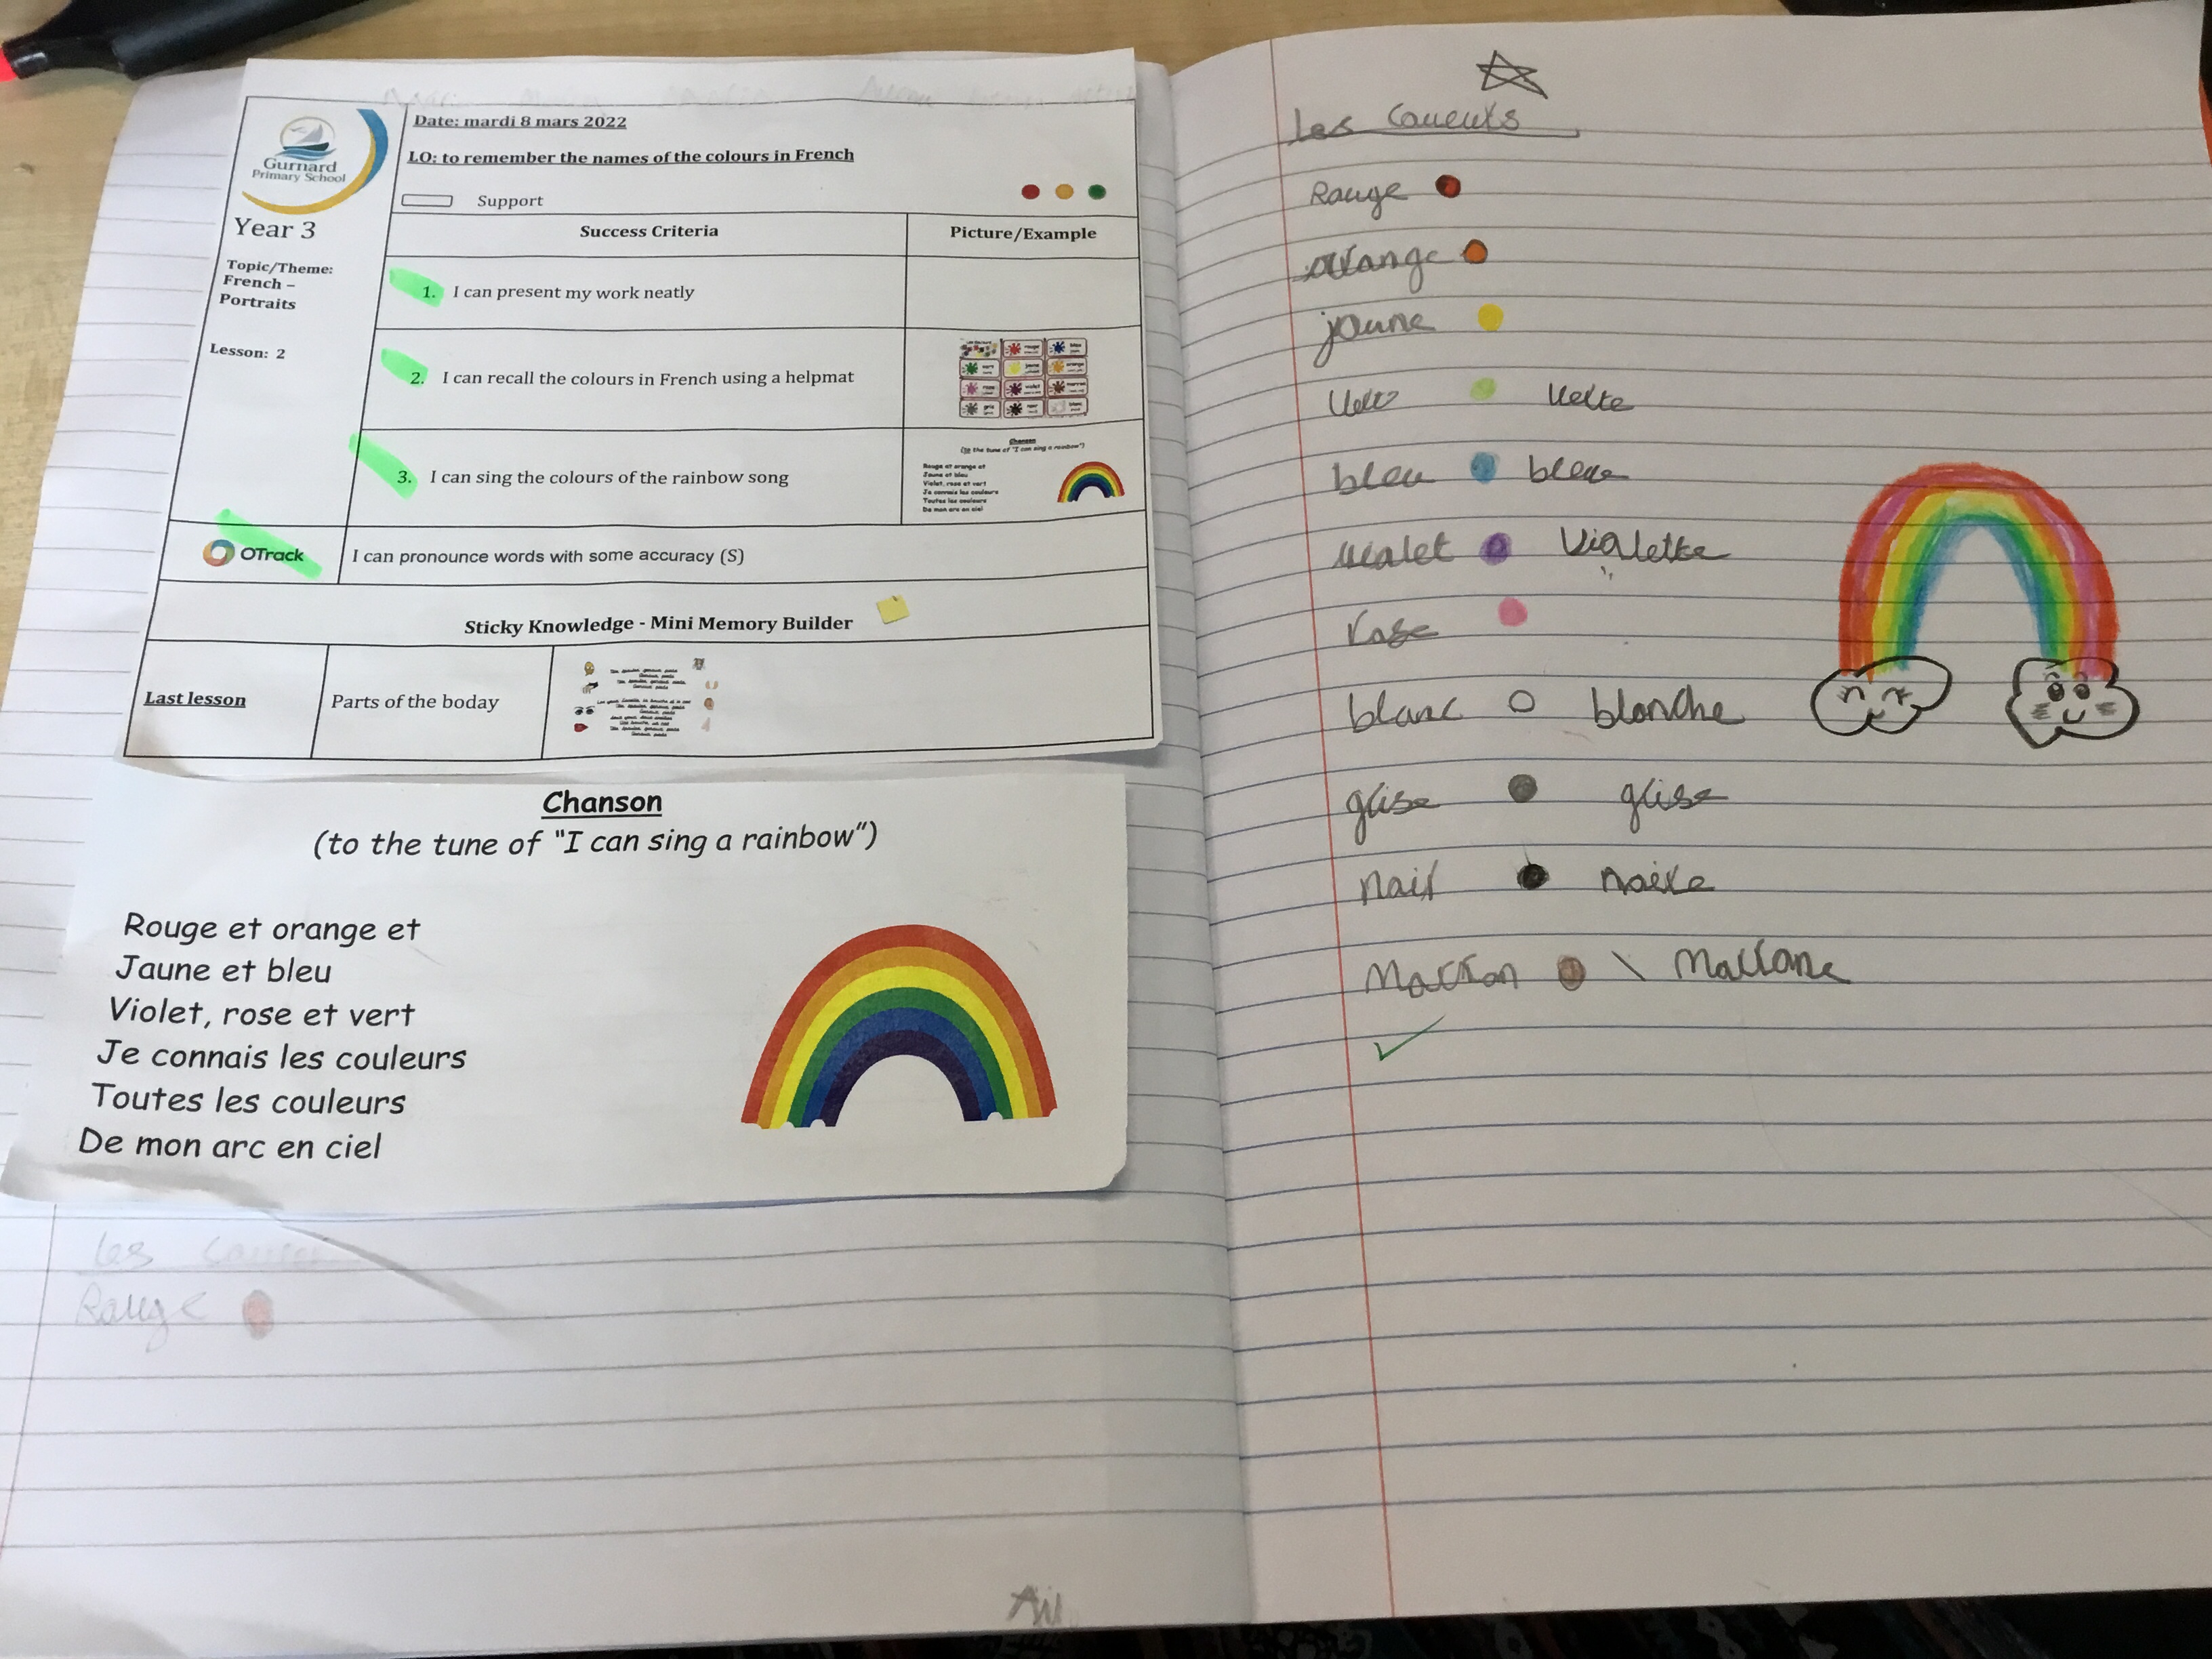 Gurnard
Primary School
Year 3
Topic/Theme:
French –
Portraits
Lesson: 2
Date: mardi 8 mars 2022
LO: to remember the names of the colours in French
Support
Success Criteria
Picture/Example
1. I can present my work neatly
2. I can recall the colours in French using a helpmat
3. I can sing the colours of the rainbow song
Chanson
(to the tune of "I can sing a rainbow")
Rouge et orange et
Jaune et bleu
Violet, rose et vert
Je connais les couleurs
Toutes les couleurs
De mon arc en ciel
OTrack
I can pronounce words with some accuracy (S)
Sticky Knowledge - Mini Memory Builder
Last lesson
Parts of the boday
Chanson
(to the tune of "I can sing a rainbow")
Rouge et orange et
Jaune et bleu
Violet, rose et vert
Je connais les couleurs
Toutes les couleurs
De mon arc en ciel
Les
Rouge
Les
Rouge
orange
jaune
verte
bleu bleue
violet violette
rose
blanc blanche
grise grise
noir noire
Marron Marrone